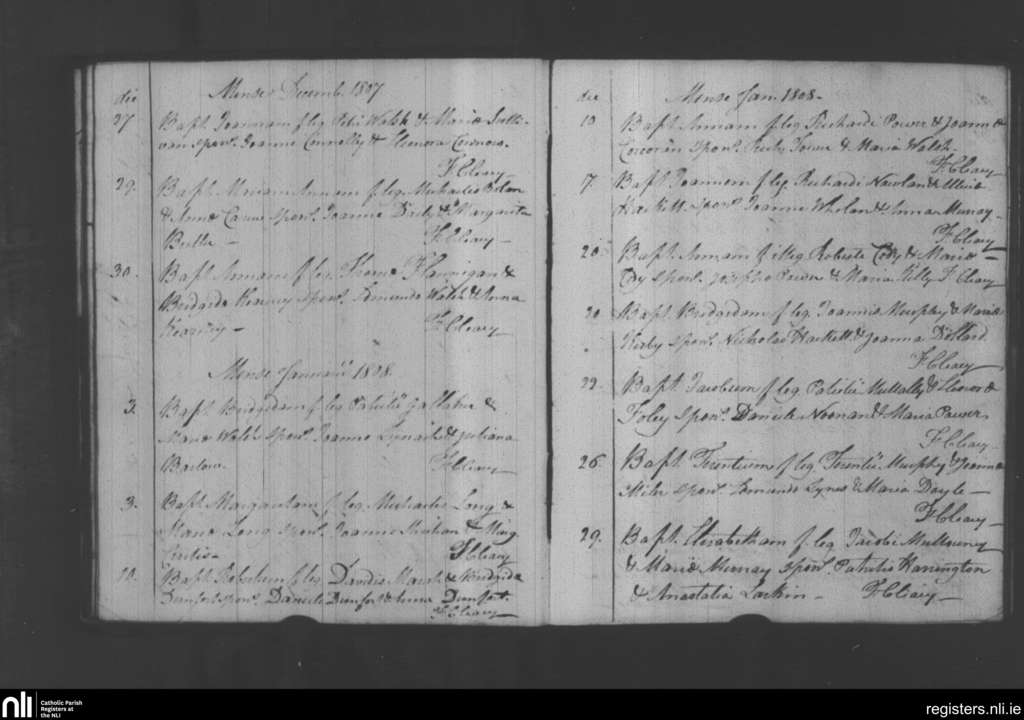 die Mense Decemb. 1807
27 Bapt. Joannem f. leg. Petri Walsh & Mariæ Sulli-
van spons. Joanne Connelly & Elenora Connors.
F. Cleary
29. Bapt. Mariam Annam f. leg. Michaelis
& Anna spons. Joanne Daily & Margarita
Butler —
F. Cleary —
30. Bapt. Annam f. leg. Thomæ Flannigan &
Bridgidæ Kearney spons. Edmundo Walsh & Anna
—
F. Cleary —
Mense Januarii 1808.
3. Bapt. Bridgidam f. leg. Patricii &
Mariæ Walsh spons. Joanne & Juliana
Barlow.
F. Cleary —
3. Bapt. Margaritam f. leg. Michaelis Long &
Mariæ Long spons. Joanne &
F. Cleary
10. Bapt. f. leg. Davidis & Bridgida
spons. Daniele & Anna
F. Cleary —
die Mense Jan. 1808 -
10 Bapt. Annam f. leg. Richardi Power & Joannæ
Corcoran spons. Power & Maria Walsh.
F. Cleary
17. Bapt. Joannem f. leg. Richardi Nowlan &
Hackett spons. Joanne Whelan & Anna Murray —
F. Cleary
20. Bapt. Annam f. illeg. Roberti Cody & Mariæ —
Cody spons. Josepho Power & Maria Tilly F. Cleary
20 Bapt. Bridgidam f. leg. Joannis Murphy & Mariæ
Kirby spons. Nicholao Hackett & Joanna Dollard
F. Cleary
22. Bapt. Jacobum f. leg. Patricii Mullally & Elenoræ
Foley spons. Daniele Noonan & Maria Power
F. Cleary —
26. Bapt. Terentium f. leg. Terentii Murphy & Joannæ
Miler spons. Edmundo Lynes & Maria Doyle —
F. Cleary —
29. Bapt. Elizabetham f. leg. Jacobi Mullowney
& Mariæ Murray spons. Patricio Harrington
& Anastatia Larkin —
F. Cleary —
nli Catholic Parish
Registers at
the NLI
registers.nli.ie